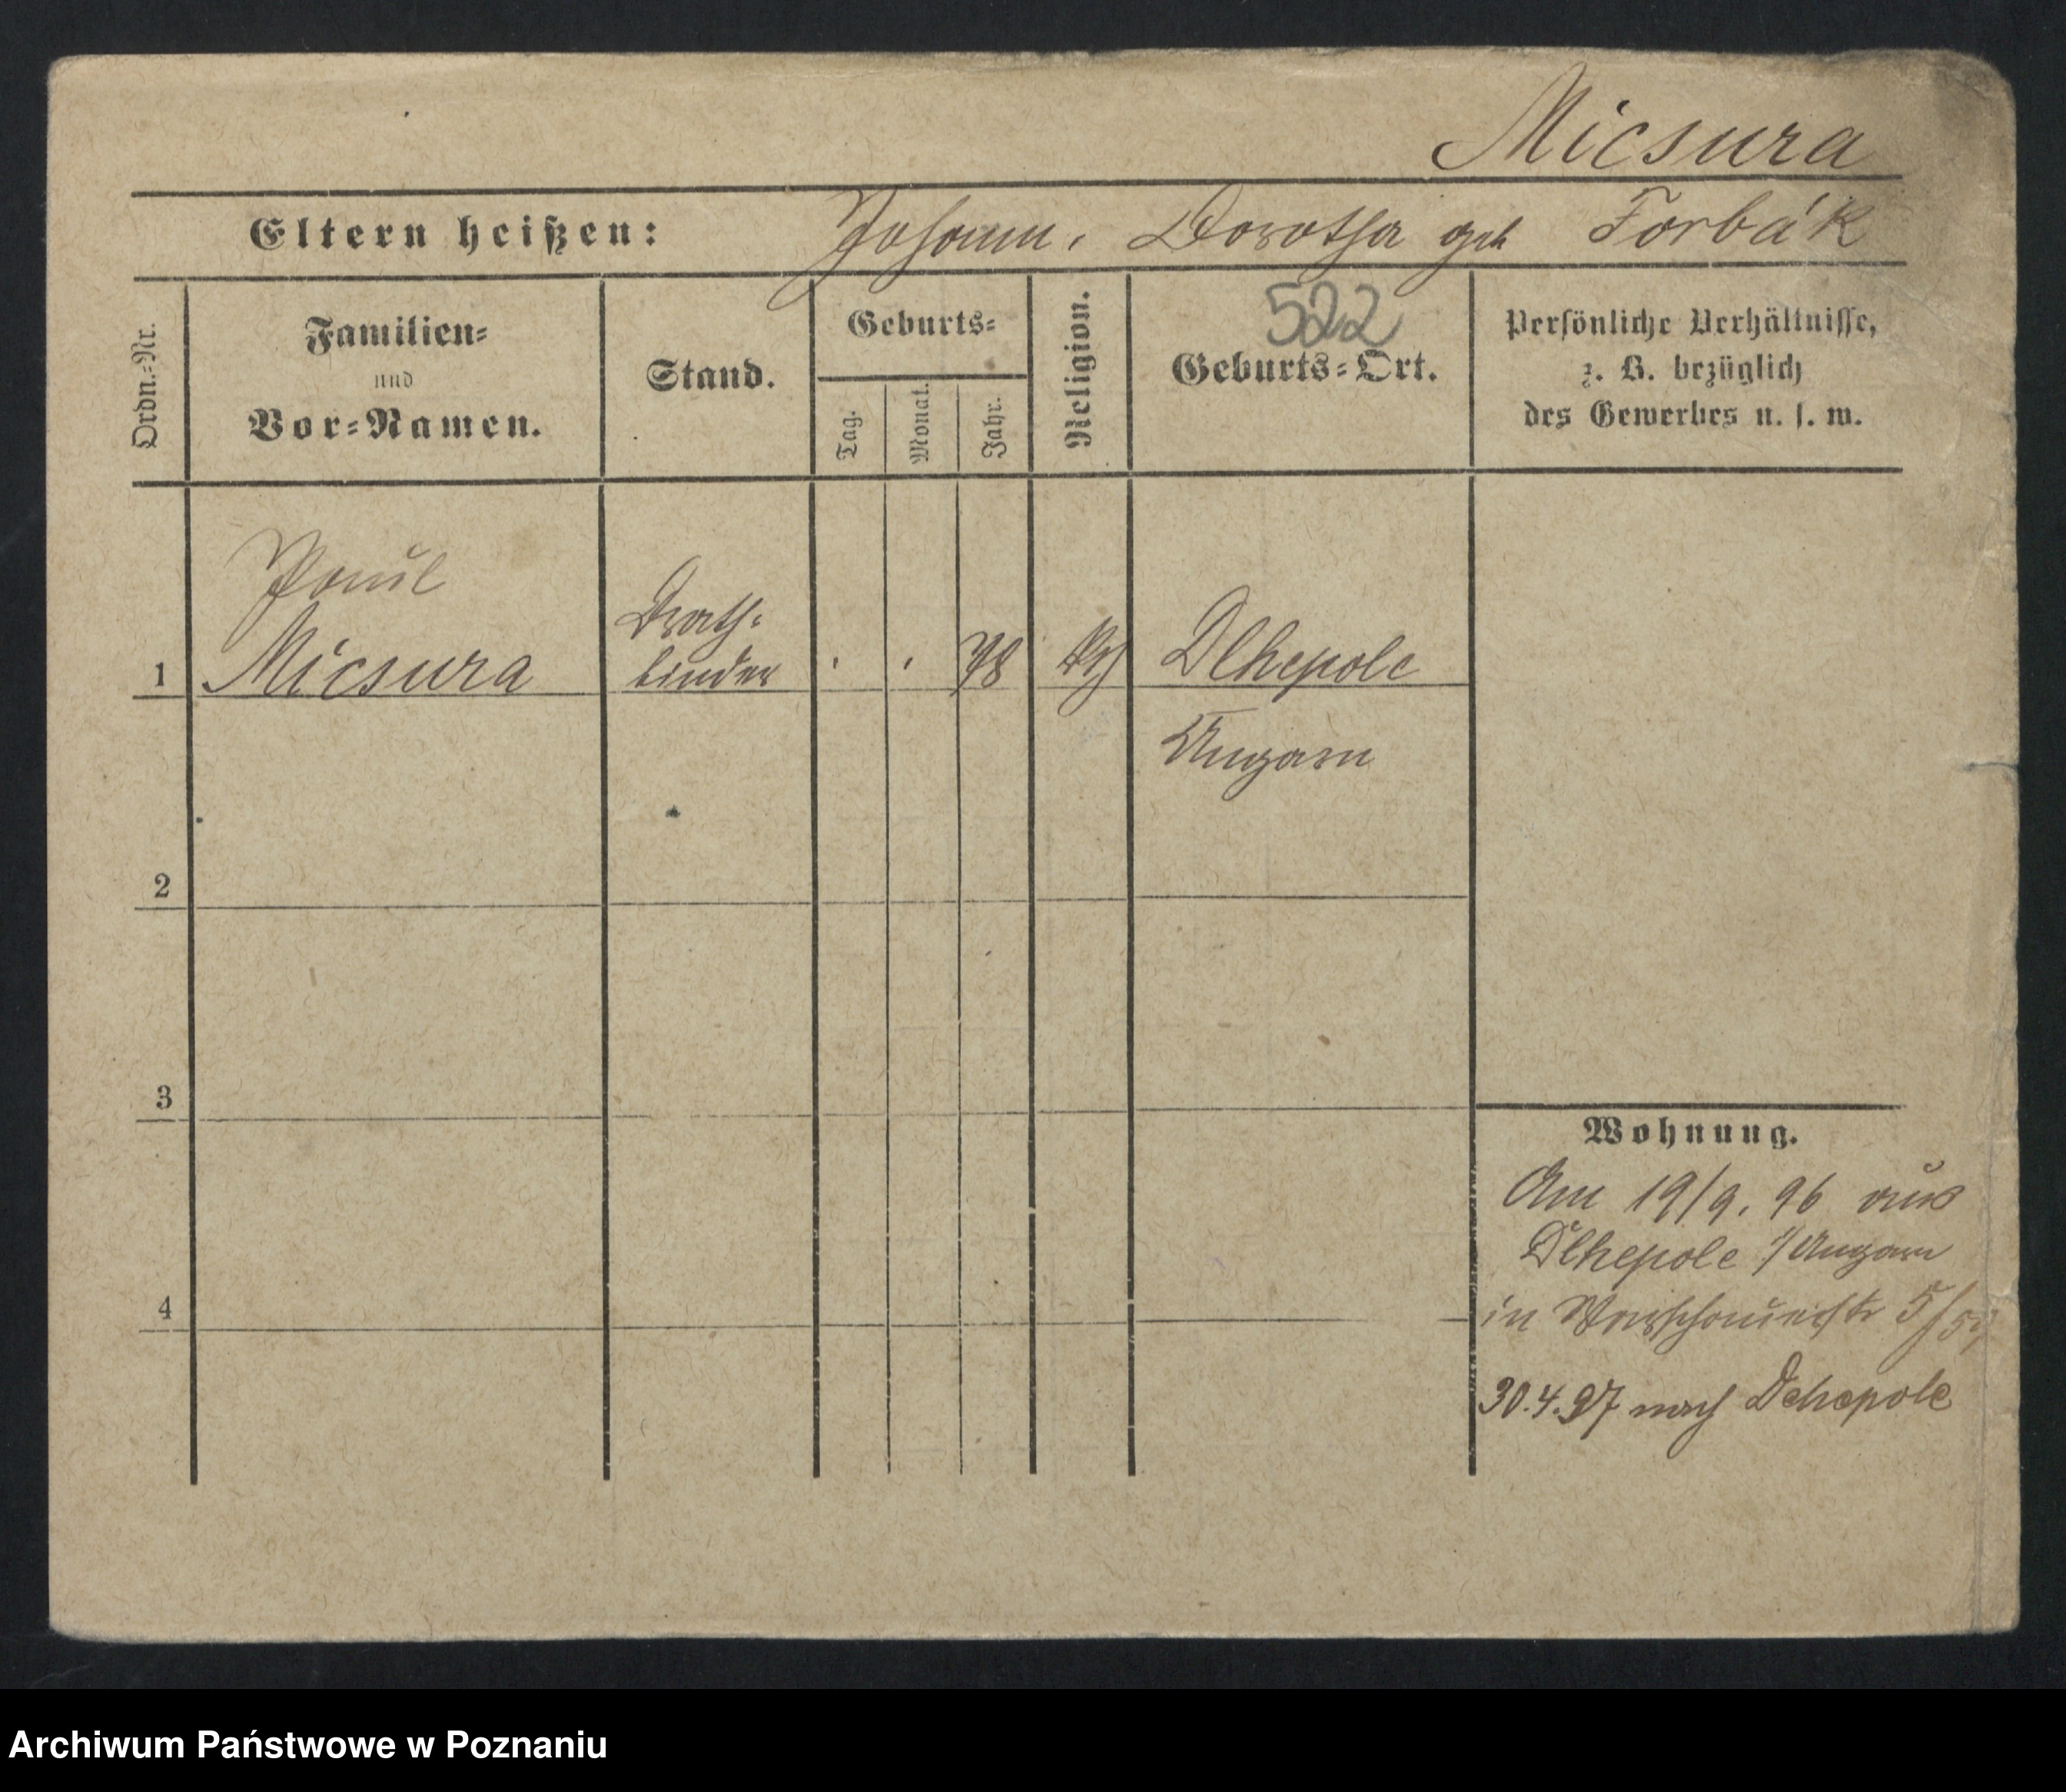 Micsura
Eltern heißen: Johann, Dorothea geb Forbák
Ordn.-Nr.
Familien-
und
Vor-Namen.
Stand.
Geburts-
Tag.
Monat.
Jahr.
Religion.
522
Geburts-Ort.
Persönliche Verhältnisse,
z. B. bezüglich
des Gewerbes u. s. w.
Paul
Drath-
1 Micsura binder 78 Dlhepole
Ungarn
2
3
4
Wohnung.
Am 19/9. 96 aus
Dlhepole i/Ungarn
in Warschauerstr 5/
30.4.97 nach Dehepole
Archiwum Państwowe w Poznaniu